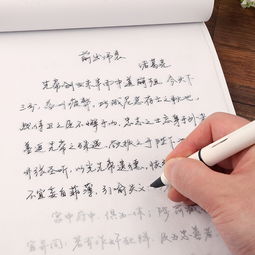 前出师表
诸葛亮
先帝创业未半而中道崩殂，今天下
三分，益州疲弊，此诚危急存亡之秋也，
然侍卫之臣不懈于内，忠志之士忘身于外
盖追先帝之殊遇，欲报之于陛下
开张圣听，以光先帝遗德，恢
不宜妄自菲薄，引喻失义
宫中府中，俱为一体；陟
宜异同：若有作奸犯科